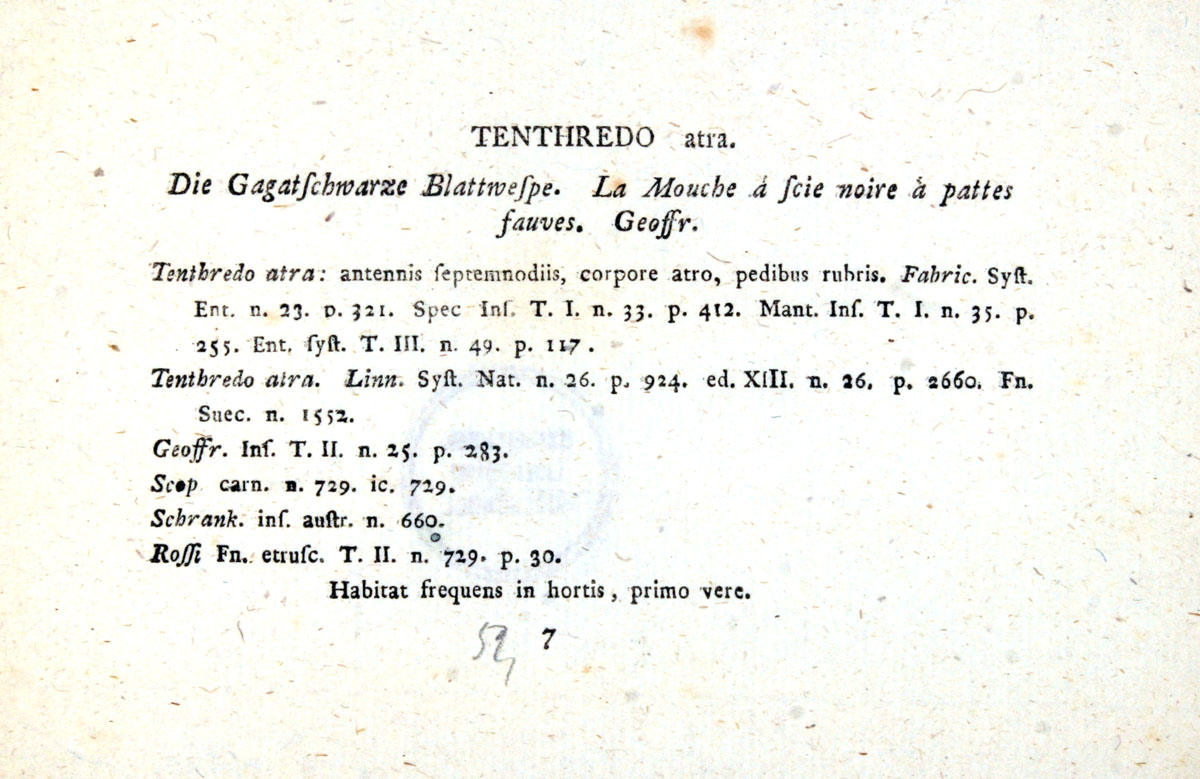 TENTHREDO atra.
Die Gagatſchwarze Blattweſpe. La Mouche á ſcie noire à pattes
fauves. Geoffr.
Tenthredo atra: antennis ſeptemnodiis, corpore atro, pedibus rubris. Fabric. Syſt.
Ent. n. 23. p. 321. Spec Inſ. T. I. n. 33. p. 412. Mant. Inſ. T. I. n. 35. p.
255. Ent. ſyſt. T. III. n. 49. p. 117.
Tenthredo atra. Linn. Syſt. Nat. n. 26. p. 924. ed. XIII. n. 26. p. 2660. Fn.
Suec. n. 1552.
Geoffr. Inſ. T. II. n. 25. p. 283.
Scop carn. n. 729. ic. 729.
Schrank. inſ. auſtr. n. 660.
Roſſi Fn. etruſc. T. II. n. 729. p. 30.
Habitat frequens in hortis, primo vere.
7